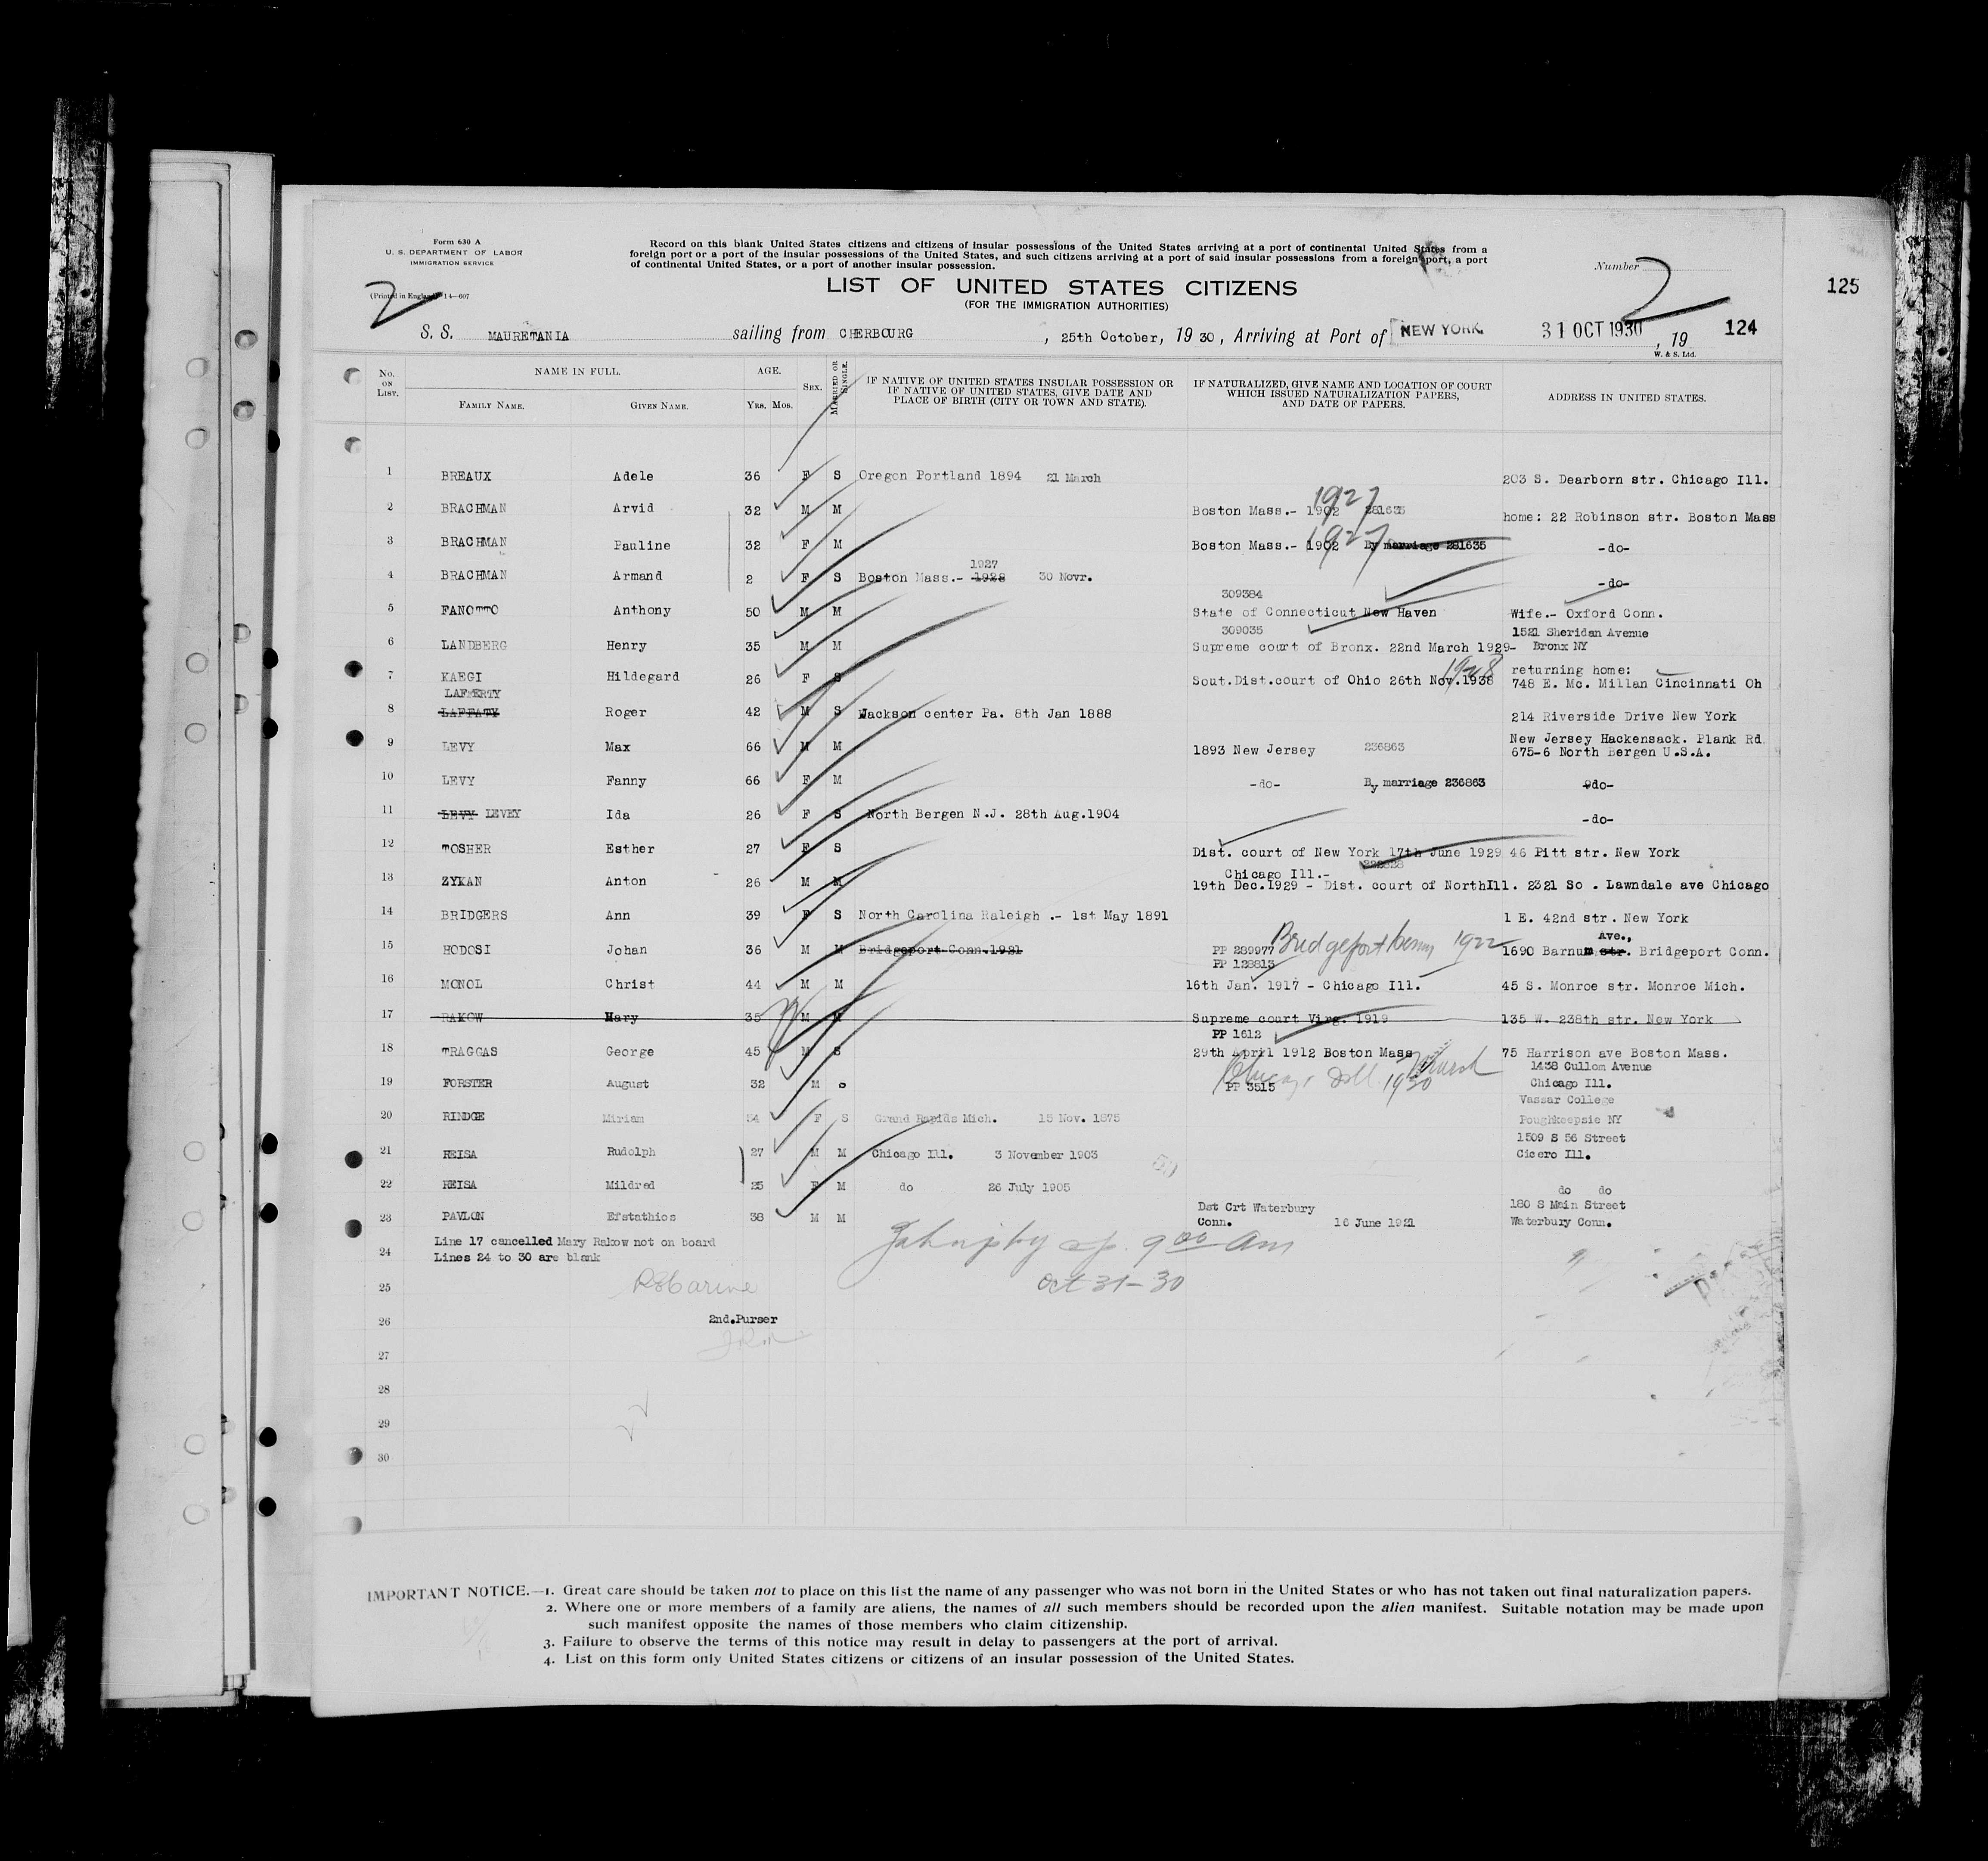 Form 630 A
U. S. DEPARTMENT OF LABOR
IMMIGRATION SERVICE
(Printed in England) 14—607
2
Record on this blank United States citizens and citizens of insular possessions of the United States arriving at a port of continental United States from a
foreign port or a port of the insular possessions of the United States, and such citizens arriving at a port of said insular possessions from a foreign port, a port
of continental United States, or a port of another insular possession.
LIST OF UNITED STATES CITIZENS
(FOR THE IMMIGRATION AUTHORITIES)
Number 2
125
S. S. MAURETANIA sailing from CHERBOURG , 25th October, 19 30 , Arriving at Port of NEW YORK. 31 OCT 1930 , 19 124
W. & S. Ltd.
No. ON LIST. NAME IN FULL. FAMILY NAME. GIVEN NAME. AGE. YRS. MOS. SEX. MARRIED OR SINGLE. IF NATIVE OF UNITED STATES INSULAR POSSESSION OR IF NATIVE OF UNITED STATES, GIVE DATE AND PLACE OF BIRTH (CITY OR TOWN AND STATE). IF NATURALIZED, GIVE NAME AND LOCATION OF COURT WHICH ISSUED NATURALIZATION PAPERS, AND DATE OF PAPERS. ADDRESS IN UNITED STATES.
1 BREAUX Adele 36 F S Oregon Portland 1894 21 March 203 S. Dearborn str. Chicago Ill.
1927
2 BRACHMAN Arvid 32 M M Boston Mass.- 1902 281635 home: 22 Robinson str. Boston Mass
1927
3 BRACHMAN Pauline 32 F M Boston Mass.- 1902 By marriage 281635 -do-
1927
4 BRACHMAN Armand 2 F S Boston Mass.- 1928 30 Novr. -do-
309384
5 FANOTTO Anthony 50 M M State of Connecticut New Haven Wife.- Oxford Conn.
309035 1521 Sheridan Avenue
6 LANDBERG Henry 35 M M Supreme court of Bronx. 22nd March 1929- Bronx NY
1928 returning home:
7 KAEGI Hildegard 26 F S Sout.Dist.court of Ohio 26th Nov.1938 748 E. Mc. Millan Cincinnati Oh
LAFFERTY
8 LAFFATY Roger 42 M S Jackson center Pa. 8th Jan 1888 214 Riverside Drive New York
New Jersey Hackensack. Plank Rd.
9 LEVY Max 66 M M 1893 New Jersey 236863 675-6 North Bergen U.S.A.
10 LEVY Fanny 66 F M -do- By marriage 236863 -do-
11 LEVY LEVEY Ida 26 F S North Bergen N.J. 28th Aug.1904 -do-
12 TOSHER Esther 27 F S Dist. court of New York 17th June 1929 46 Pitt str. New York
Chicago Ill.-
13 ZYKAN Anton 26 M M 19th Dec.1929 - Dist. court of NorthIll. 2321 So . Lawndale ave Chicago
14 BRIDGERS Ann 39 F S North Carolina Raleigh .- 1st May 1891 1 E. 42nd str. New York
Ave.,
15 HODOSI Johan 36 M M Bridgeport Conn.1921 PP 289977 Bridgeport Conn 1922 1690 Barnum str. Bridgeport Conn.
PP 128813
16 MONOL Christ 44 M M 16th Jan. 1917 - Chicago Ill. 45 S. Monroe str. Monroe Mich.
17 RAKOW Mary 35 M M Supreme court Virg. 1919 135 W. 238th str. New York
PP 1612
18 TRAGGAS George 45 M S 29th April 1912 Boston Mass 75 Harrison ave Boston Mass.
Chicago Ill. March 1930 1438 Cullom Avenue
19 FORSTER August 32 M PP 3515 Chicago Ill.
Vassar College
20 RINDGE Miriam 54 F S Grand Rapids Mich. 15 Nov. 1875 Poughkeepsie NY
1509 S 56 Street
21 REISA Rudolph 27 M M Chicago Ill. 3 November 1903 Cicero Ill.
22 REISA Mildred 25 F M do 26 July 1905 do do
Dst Crt Waterbury 180 S Main Street
23 PAVLON Efstathios 38 M M Conn. 16 June 1921 Waterbury Conn.
Line 17 cancelled Mary Rakow not on board
24 Lines 24 to 30 are blank
9 00 am
25 Oct 31-30
26 2nd.Purser
27
28
29
30
IMPORTANT NOTICE.—1. Great care should be taken not to place on this list the name of any passenger who was not born in the United States or who has not taken out final naturalization papers.
2. Where one or more members of a family are aliens, the names of all such members should be recorded upon the alien manifest. Suitable notation may be made upon
such manifest opposite the names of those members who claim citizenship.
3. Failure to observe the terms of this notice may result in delay to passengers at the port of arrival.
4. List on this form only United States citizens or citizens of an insular possession of the United States.